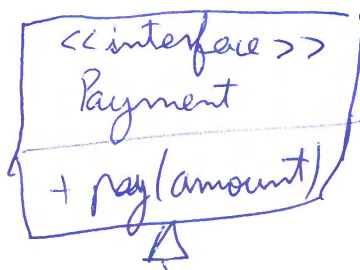 <<interface>>
Payment
+ pay(amount)